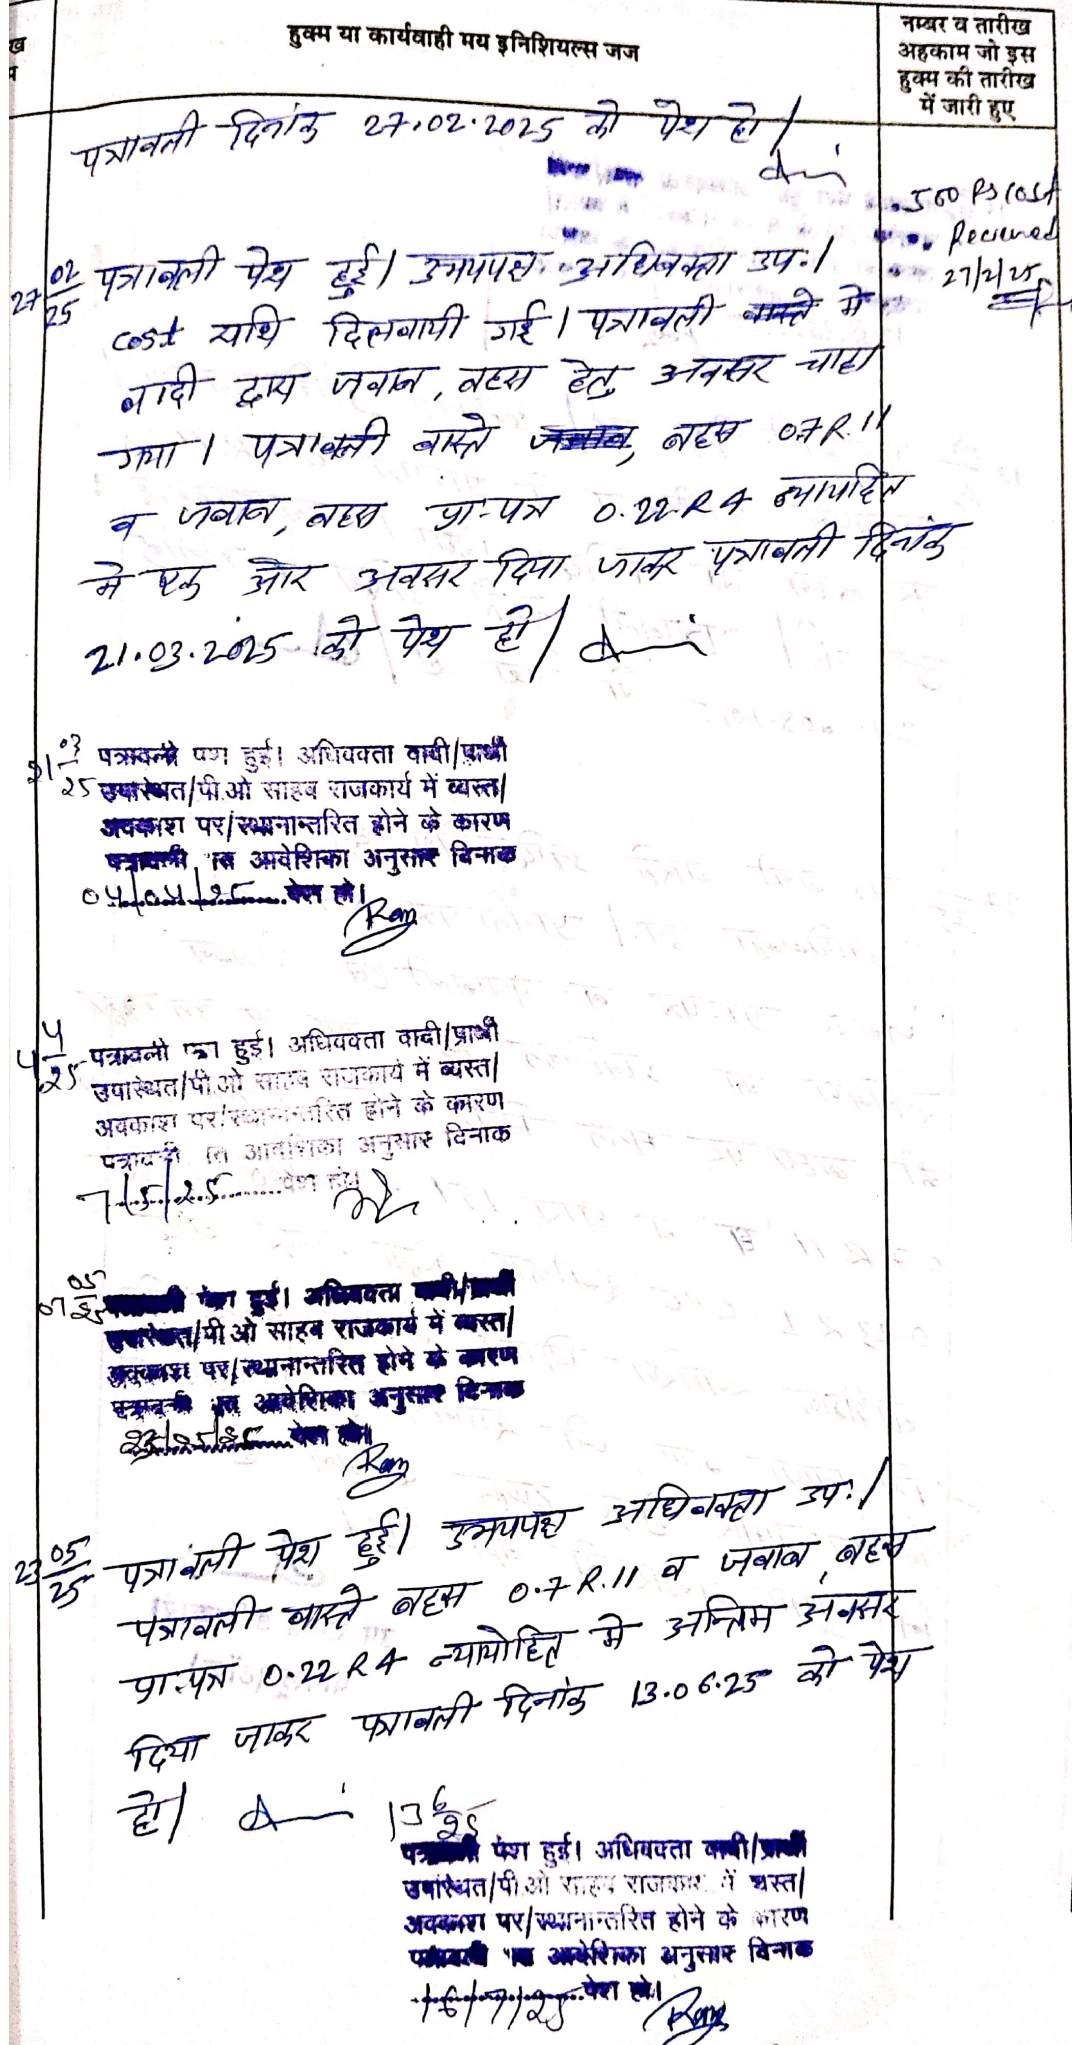 हुक्म या कार्यवाही मय इनिशियल्स जज
नम्बर व तारीख
अहकाम जो इस
हुक्म की तारीख
में जारी हुए
पत्रावली दिनांक 27.02.2025 को पेश हो।
500 Rs Cost
Recieved
27/2/25
27 02/25 पत्रावली पेश हुई। उभयपक्ष अधिवक्ता उप.।
cost राशि दिलवायी गई। पत्रावली वास्ते मे
वादी द्वारा जवाब, बहस हेतु अवसर चाहा
गया। पत्रावली वास्ते जवाब, बहस 07 R.11
व जवाब, बहस प्रा.पत्र 0.22 R 4 न्यायहित
मे एक और अवसर दिया जाकर पत्रावली दिनांक
21.03.2025 को पेश हो।
21 03/25 पत्रावली पेश हुई। अधिवक्ता वादी/प्रार्थी
उपस्थित/पी.ओ साहब राजकार्य में व्यस्त/
अवकाश पर/स्थानान्तरित होने के कारण
पत्रावली आदेशिका अनुसार दिनाक
04/04/25 पेश हो।
Ram
4 4/25 पत्रावली पेश हुई। अधिवक्ता वादी/प्रार्थी
उपस्थित/पी.ओ साहब राजकार्य में व्यस्त/
अवकाश पर/स्थानान्तरित होने के कारण
पत्रावली आदेशिका अनुसार दिनाक
7/5/25 पेश हो।
07 05/25 पत्रावली पेश हुई। अधिवक्ता वादी/प्रार्थी
उपस्थित/पी.ओ साहब राजकार्य में व्यस्त/
अवकाश पर/स्थानान्तरित होने के कारण
पत्रावली आदेशिका अनुसार दिनाक
23/05/25 पेश हो।
Ram
23 05/25 पत्रावली पेश हुई। उभयपक्ष अधिवक्ता उप.।
पत्रावली वास्ते बहस 0.7 R.11 व जवाब, बहस
प्रा.पत्र 0.22 R 4 न्यायोहित मे अन्तिम अवसर
दिया जाकर पत्रावली दिनांक 13.06.25 को पेश
हो।
13 6/25
पत्रावली पेश हुई। अधिवक्ता वादी/प्रार्थी
उपस्थित/पी.ओ साहब राजकार्य में व्यस्त/
अवकाश पर/स्थानान्तरित होने के कारण
पत्रावली आदेशिका अनुसार दिनाक
16/7/25 पेश हो।
Ram